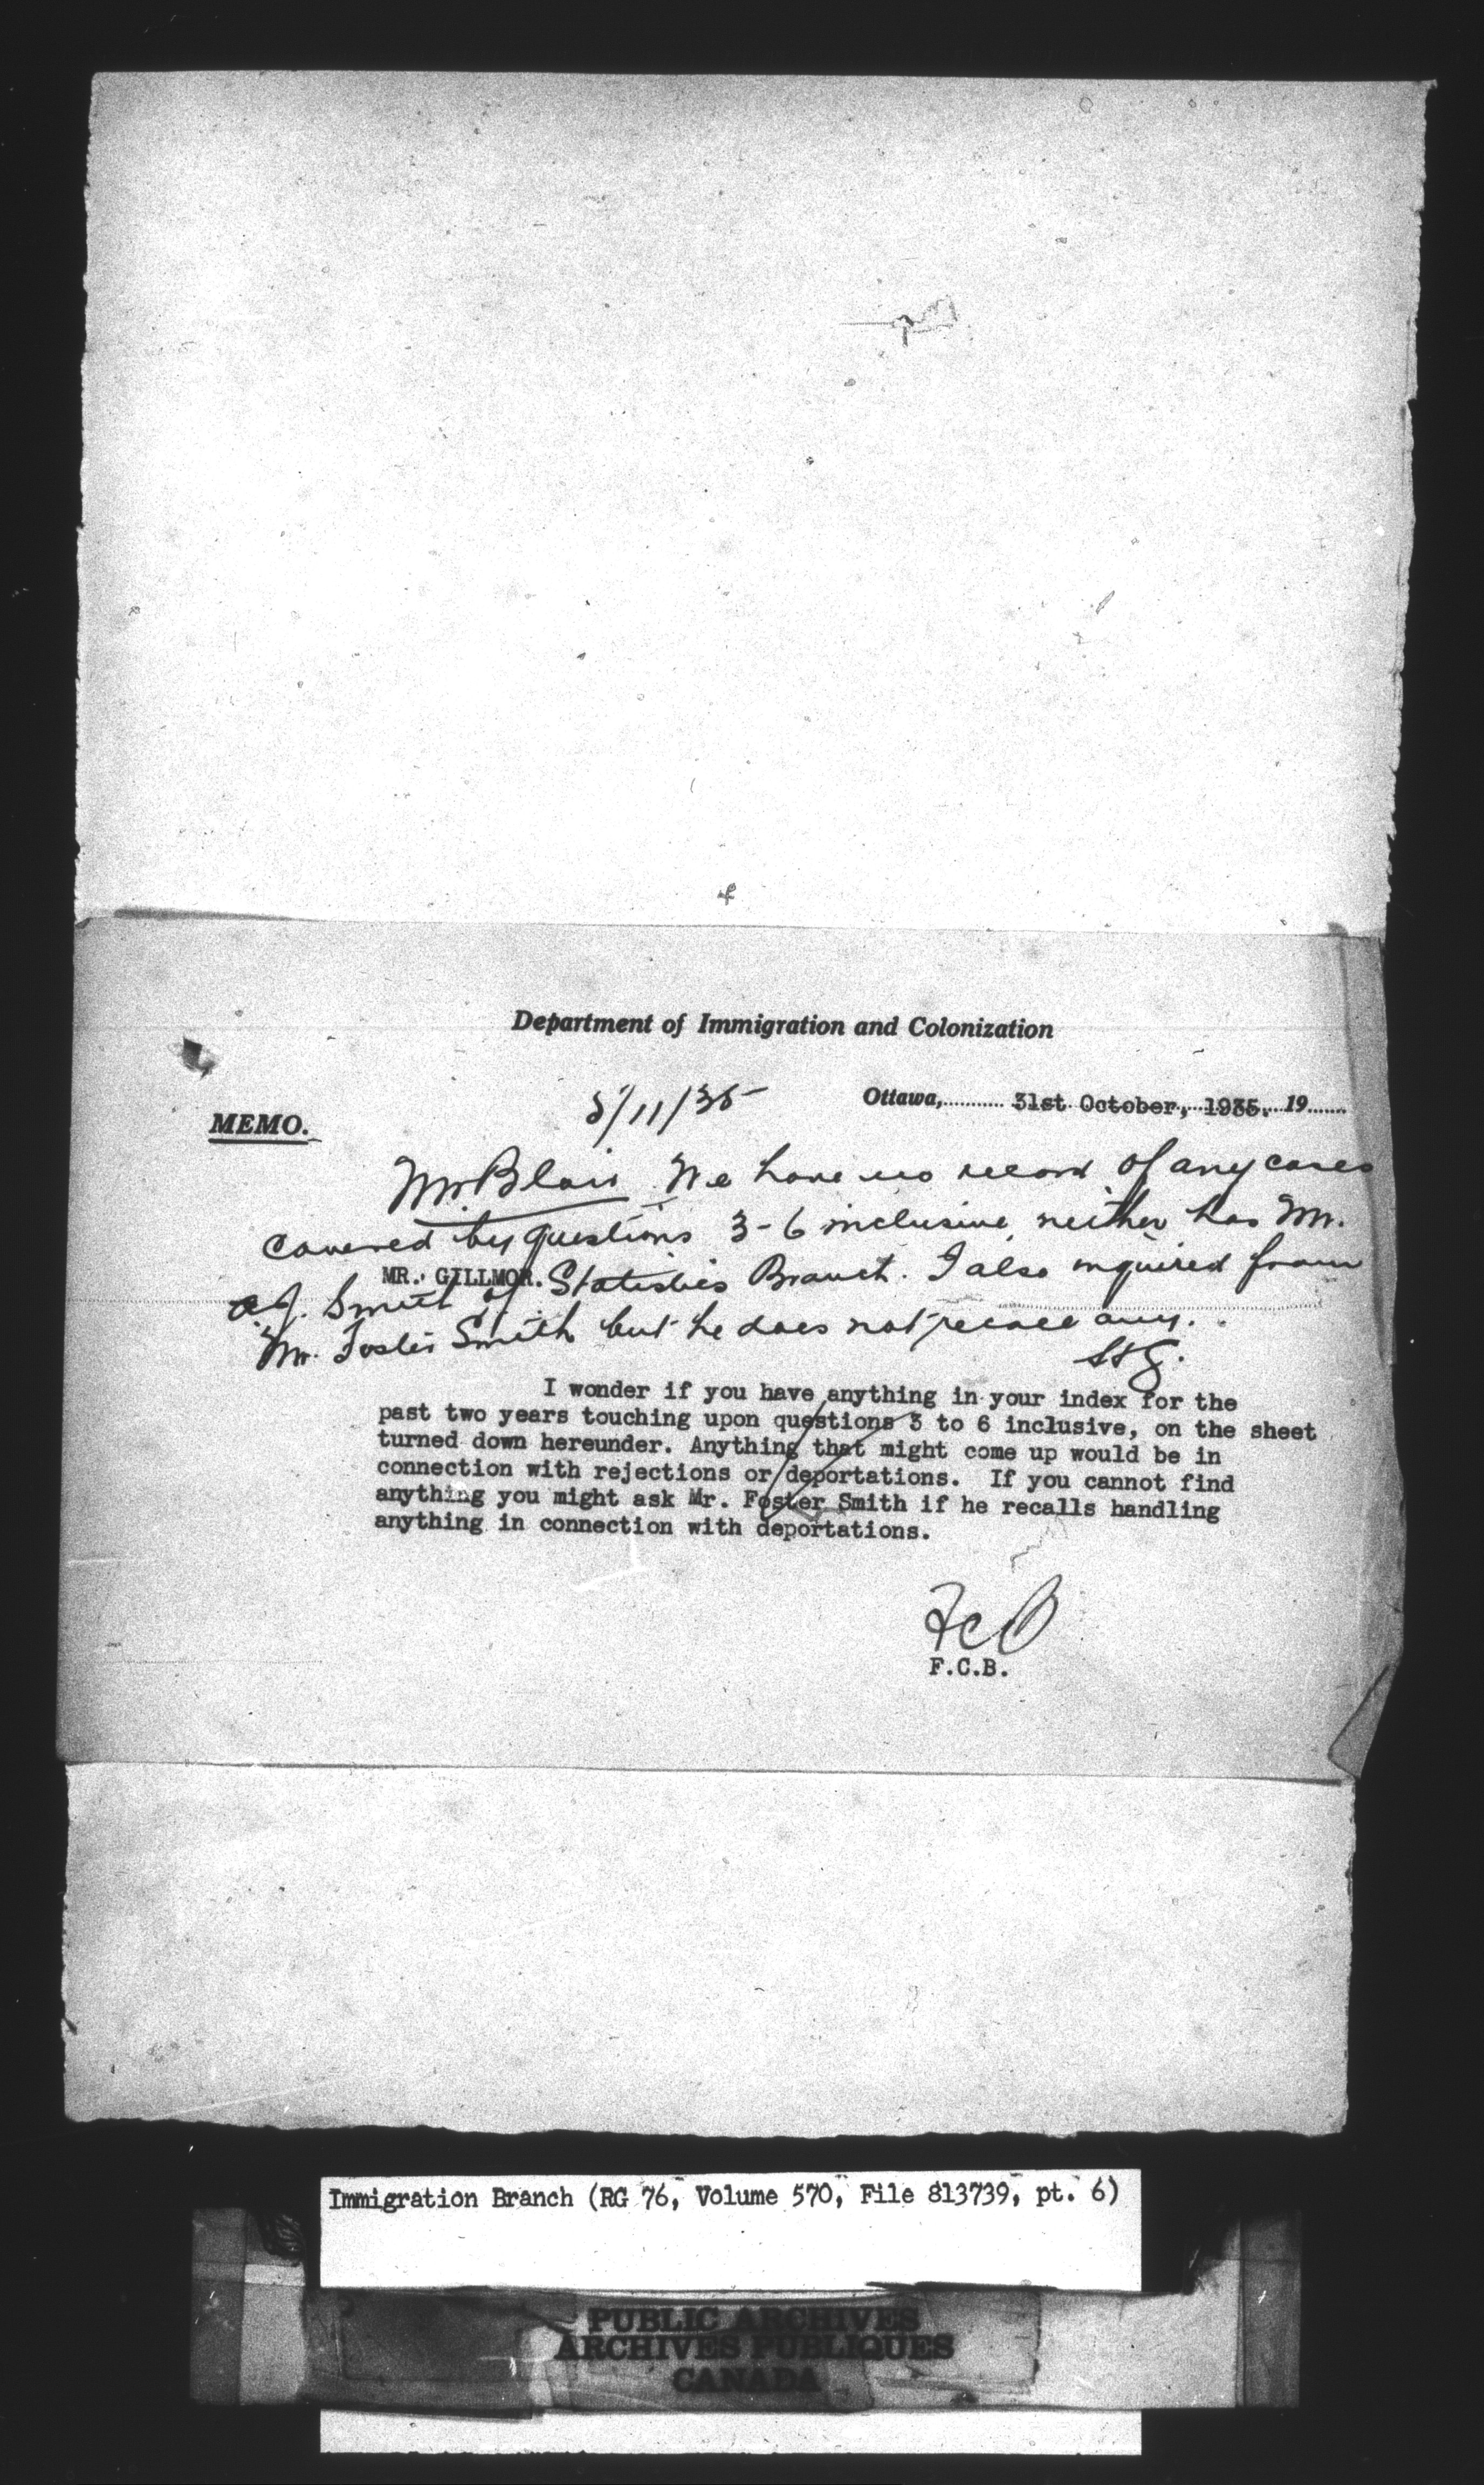 Department of Immigration and Colonization
5/11/35
Ottawa, 31st October, 1935. 19
MEMO.
Mr. Blair We have no record of any cases
covered by questions 3-6 inclusive neither has Mr.
MR. GILLMOR.
A.J. Smith of Statistics Branch. I also inquired from
Mr. Foster Smith but he does not recall any.
I wonder if you have anything in your index for the
past two years touching upon questions 3 to 6 inclusive, on the sheet
turned down hereunder. Anything that might come up would be in
connection with rejections or deportations. If you cannot find
anything you might ask Mr. Foster Smith if he recalls handling
anything in connection with deportations.
FCB
F.C.B.
Immigration Branch (RG 76, Volume 570, File 813739, pt. 6)
PUBLIC ARCHIVES
ARCHIVES PUBLIQUES
CANADA